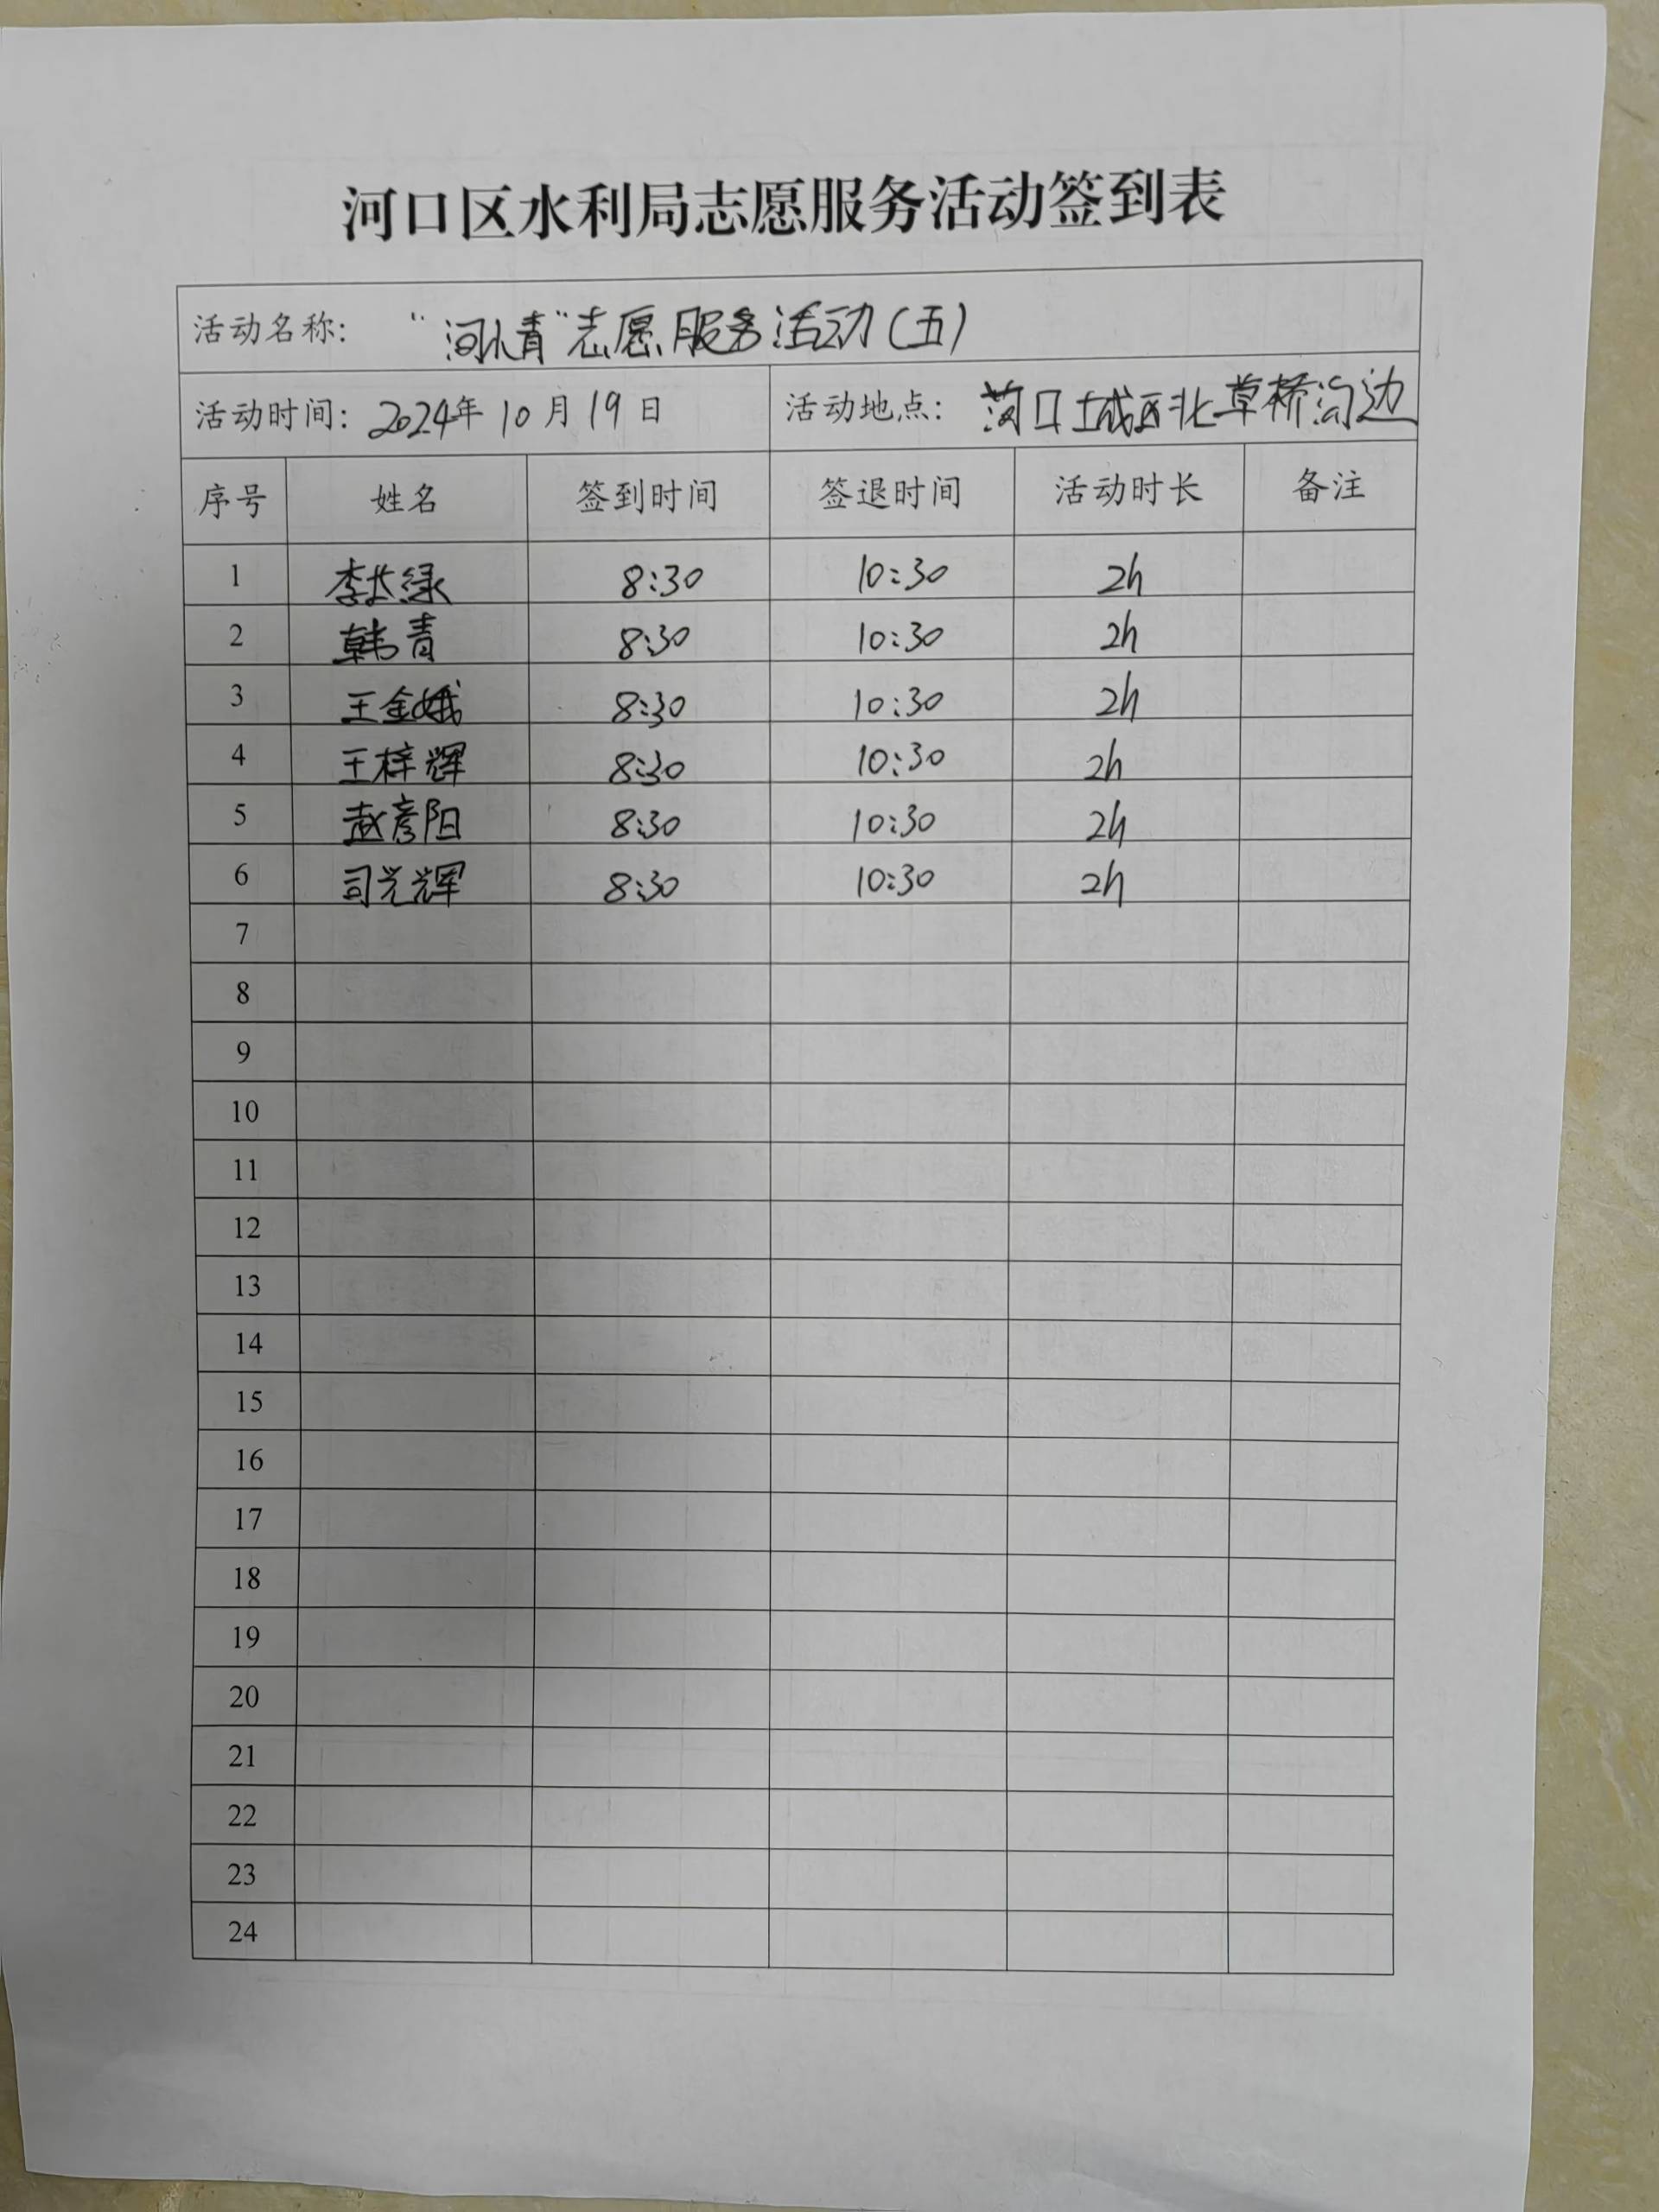 河口区水利局志愿服务活动签到表
活动名称: “河小青”志愿服务活动(五)
活动时间: 2024年10月19日 活动地点: 河口城区北草桥沟边
序号 姓名 签到时间 签退时间 活动时长 备注
1 李 绿 8:30 10:30 2h
2 韩青 8:30 10:30 2h
3 王金娥 8:30 10:30 2h
4 王梓辉 8:30 10:30 2h
5 赵彦阳 8:30 10:30 2h
6 司光辉 8:30 10:30 2h
7
8
9
10
11
12
13
14
15
16
17
18
19
20
21
22
23
24